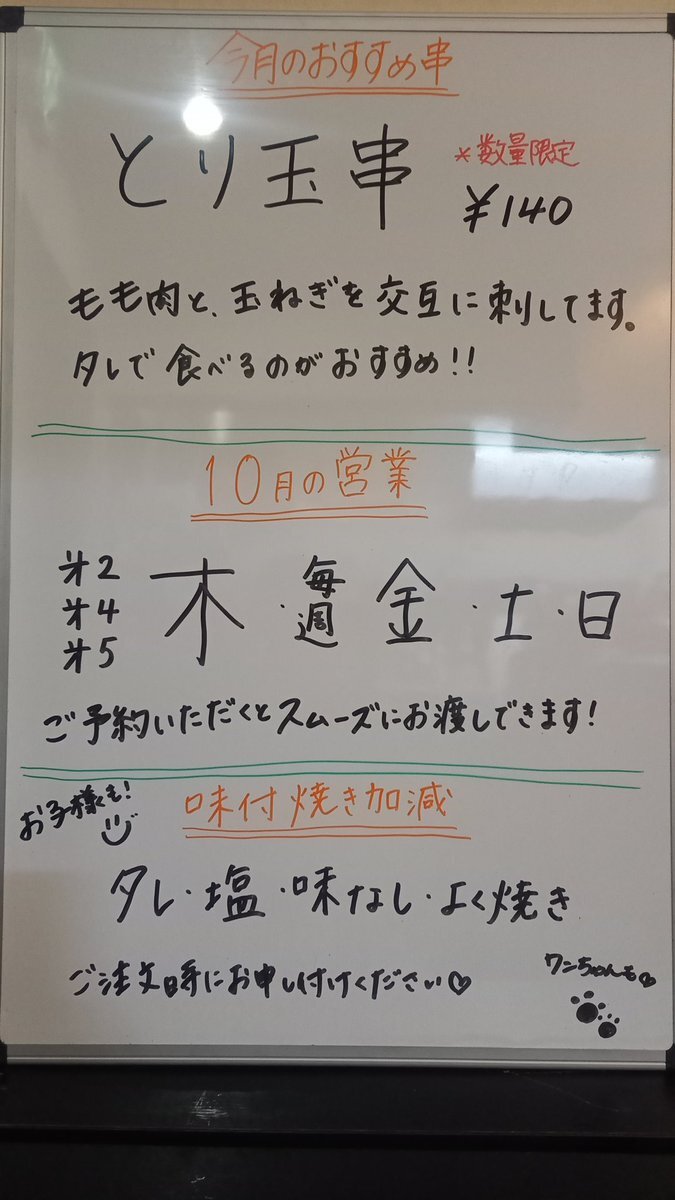 今月のおすすめ串
とり玉串
*数量限定
¥140
もも肉と、玉ねぎを交互に刺してます。
タレで食べるのがおすすめ!!
10月の営業
才2
才4
才5
木・毎週金・土・日
ご予約いただくとスムーズにお渡しできます!
お子様も!
味付焼き加減
タレ・塩・味なし・よく焼き
ご注文時にお申し付けください♡
ワンちゃんも♡